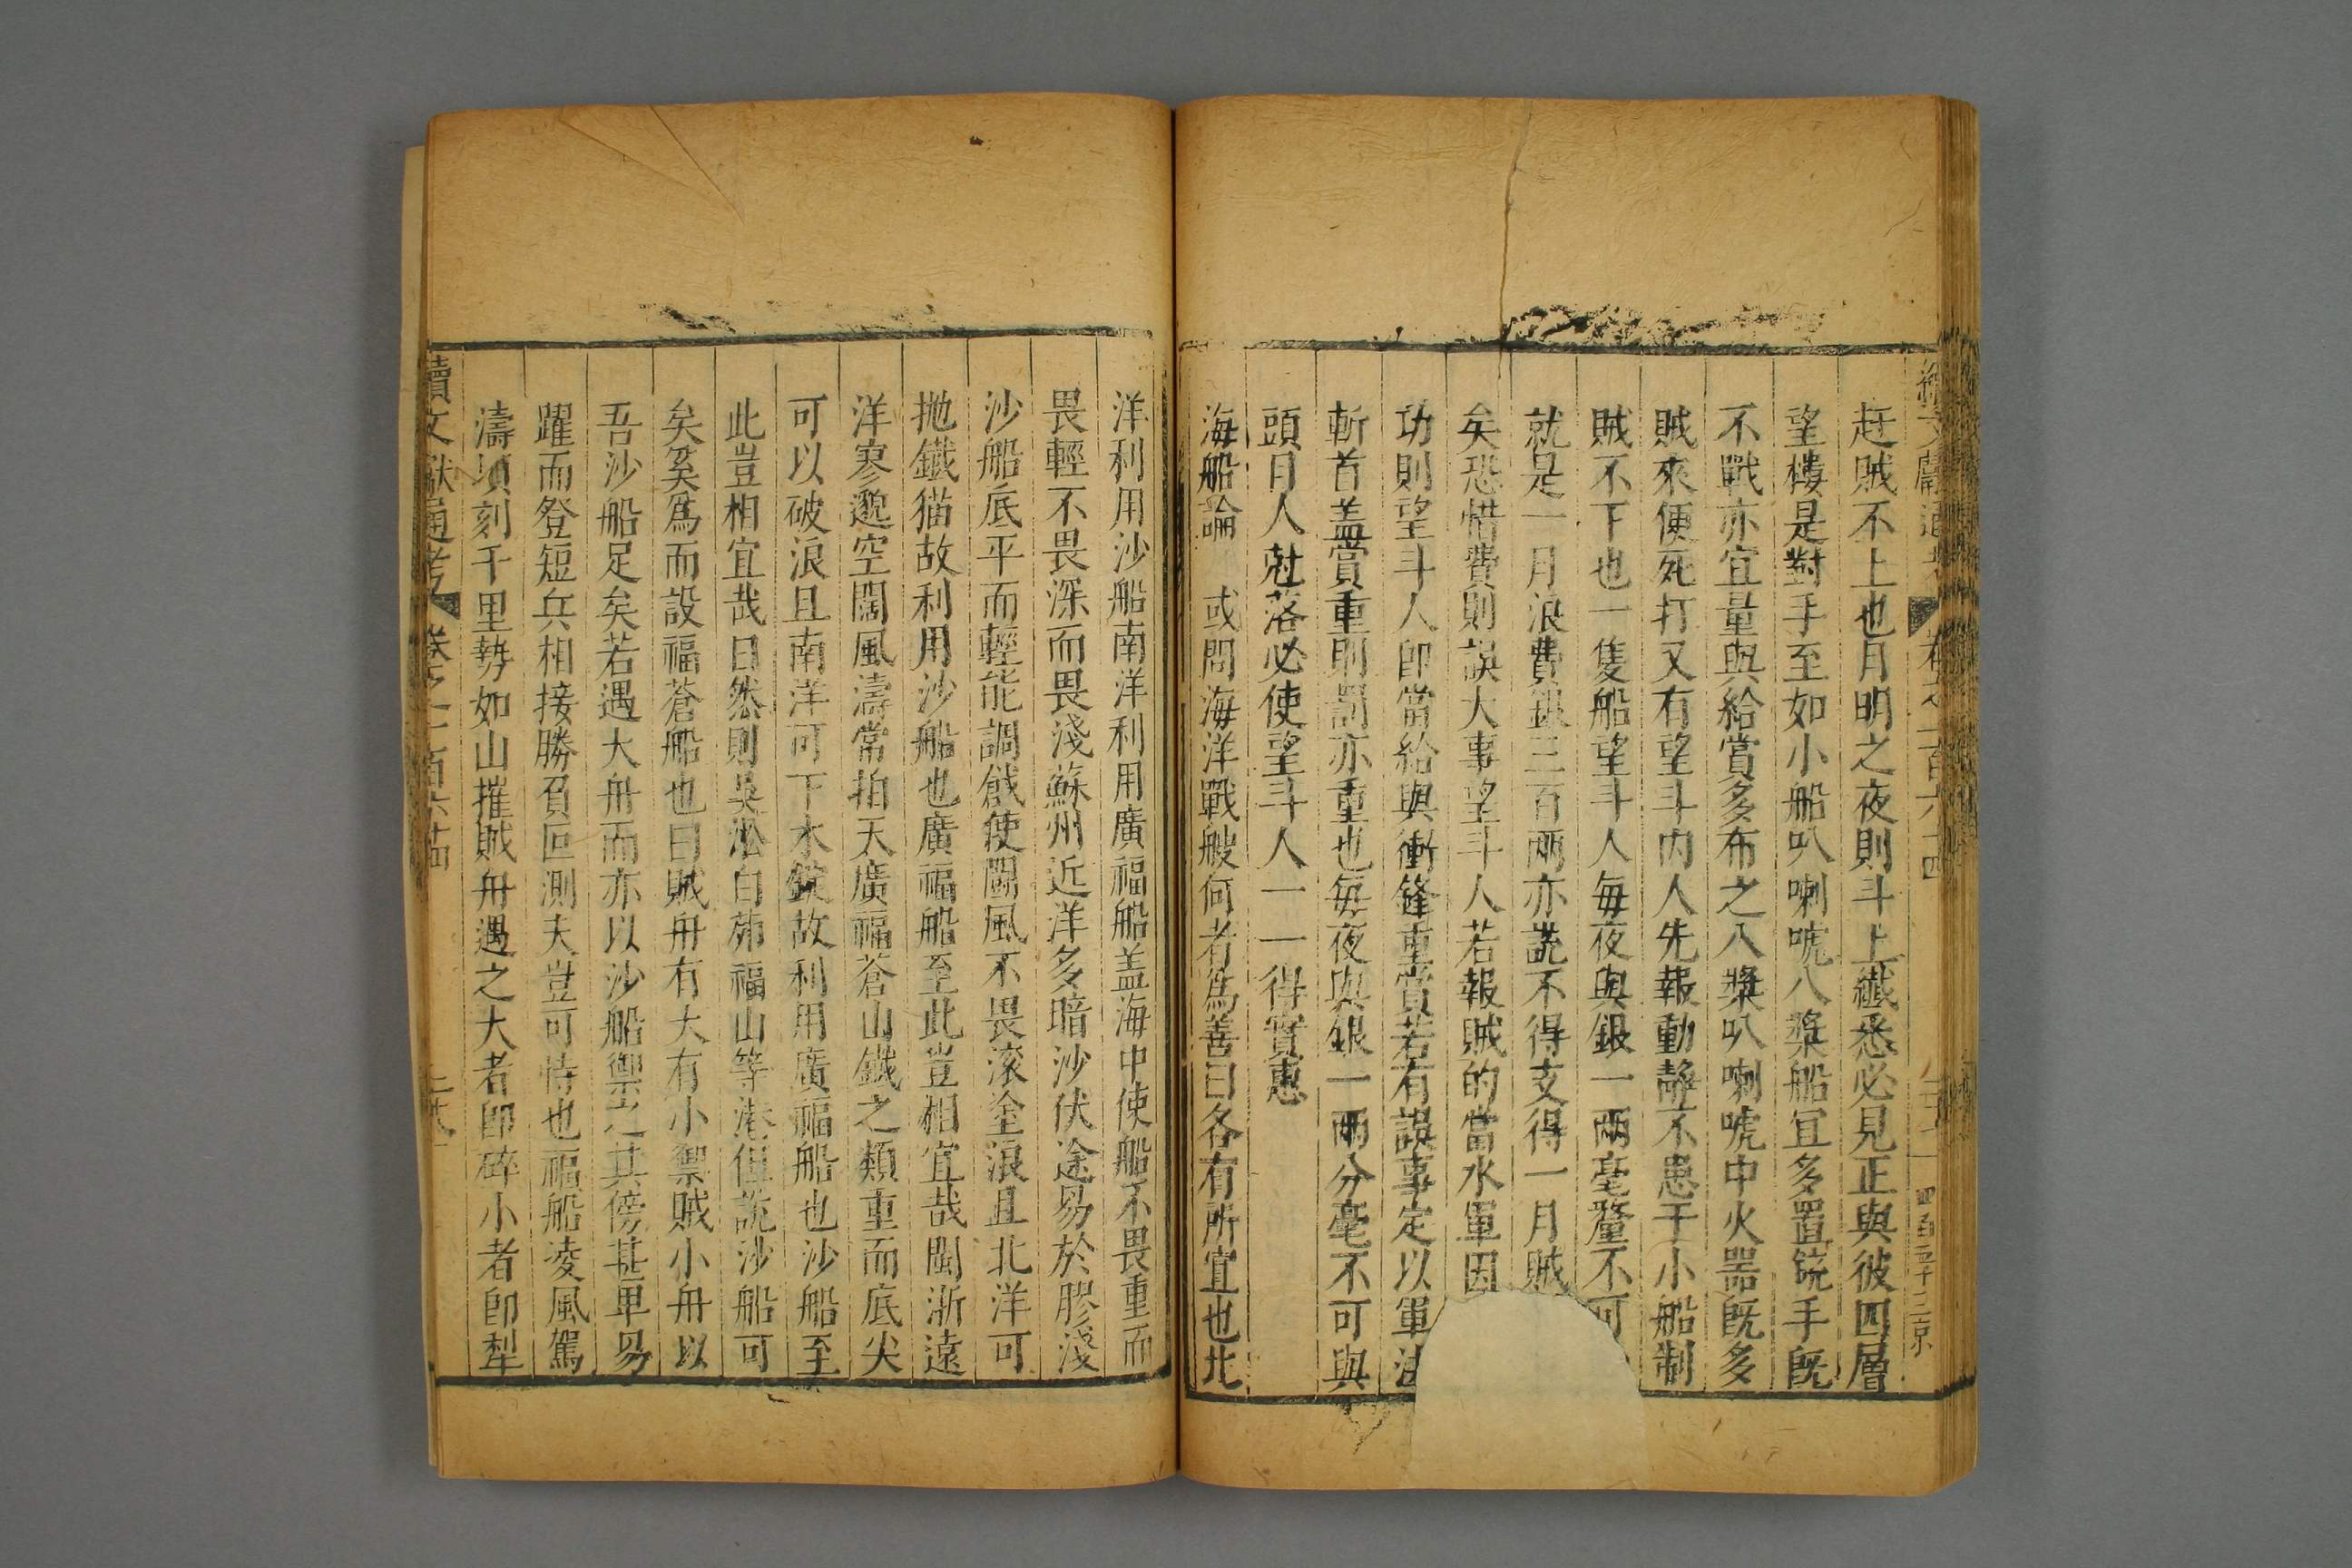 續文獻通考 卷之一百六十四 四百五十三京
赶賊不上也月明之夜則斗上纖悉必見正與彼四層
望樓是對手至如小船叭喇唬八槳船宜多置銃手既
不戰亦宜量與給賞多布之八槳叭喇唬中火器既多
賊來便死打又有望斗內人先報動靜不患于小船制
賊不下也一隻船望斗人每夜與銀一兩毫釐不可
就是一月浪費銀三百兩亦説不得支得一月賊
矣恐惜費則誤大事望斗人若報賊的當水軍因
功則望斗人即當給與衝鋒重賞若有誤事定以軍法
斬首盖賞重則罰亦重也每夜與銀一兩分毫不可與
頭目人尅落必使望斗人一一得實惠
海船論 或問海洋戰艘何者爲善曰各有所宜也北
洋利用沙船南洋利用廣福船盖海中使船不畏重而
畏輕不畏深而畏淺蘇州近洋多暗沙伏途易於膠淺
沙船底平而輕能調戧使鬭風不畏滚塗浪且北洋可
抛鐵猫故利用沙船也廣福船至此豈相宜哉閩浙遠
洋寥邈空闊風濤常拍天廣福蒼山鐵之類重而底尖
可以破浪且南洋可下木錠故利用廣福船也沙船至
此豈相宜哉曰然則吳淞白茆福山等港但説沙船可
矣奚爲而設福蒼船也曰賊舟有大有小禦賊小舟以
吾沙船足矣若遇大舟而亦以沙船禦之其傍甚卑易
躍而登短兵相接勝負叵測夫豈可恃也福船凌風駕
濤頃刻千里勢如山摧賊舟遇之大者即碎小者即犁
續文獻通考 卷之一百六十四